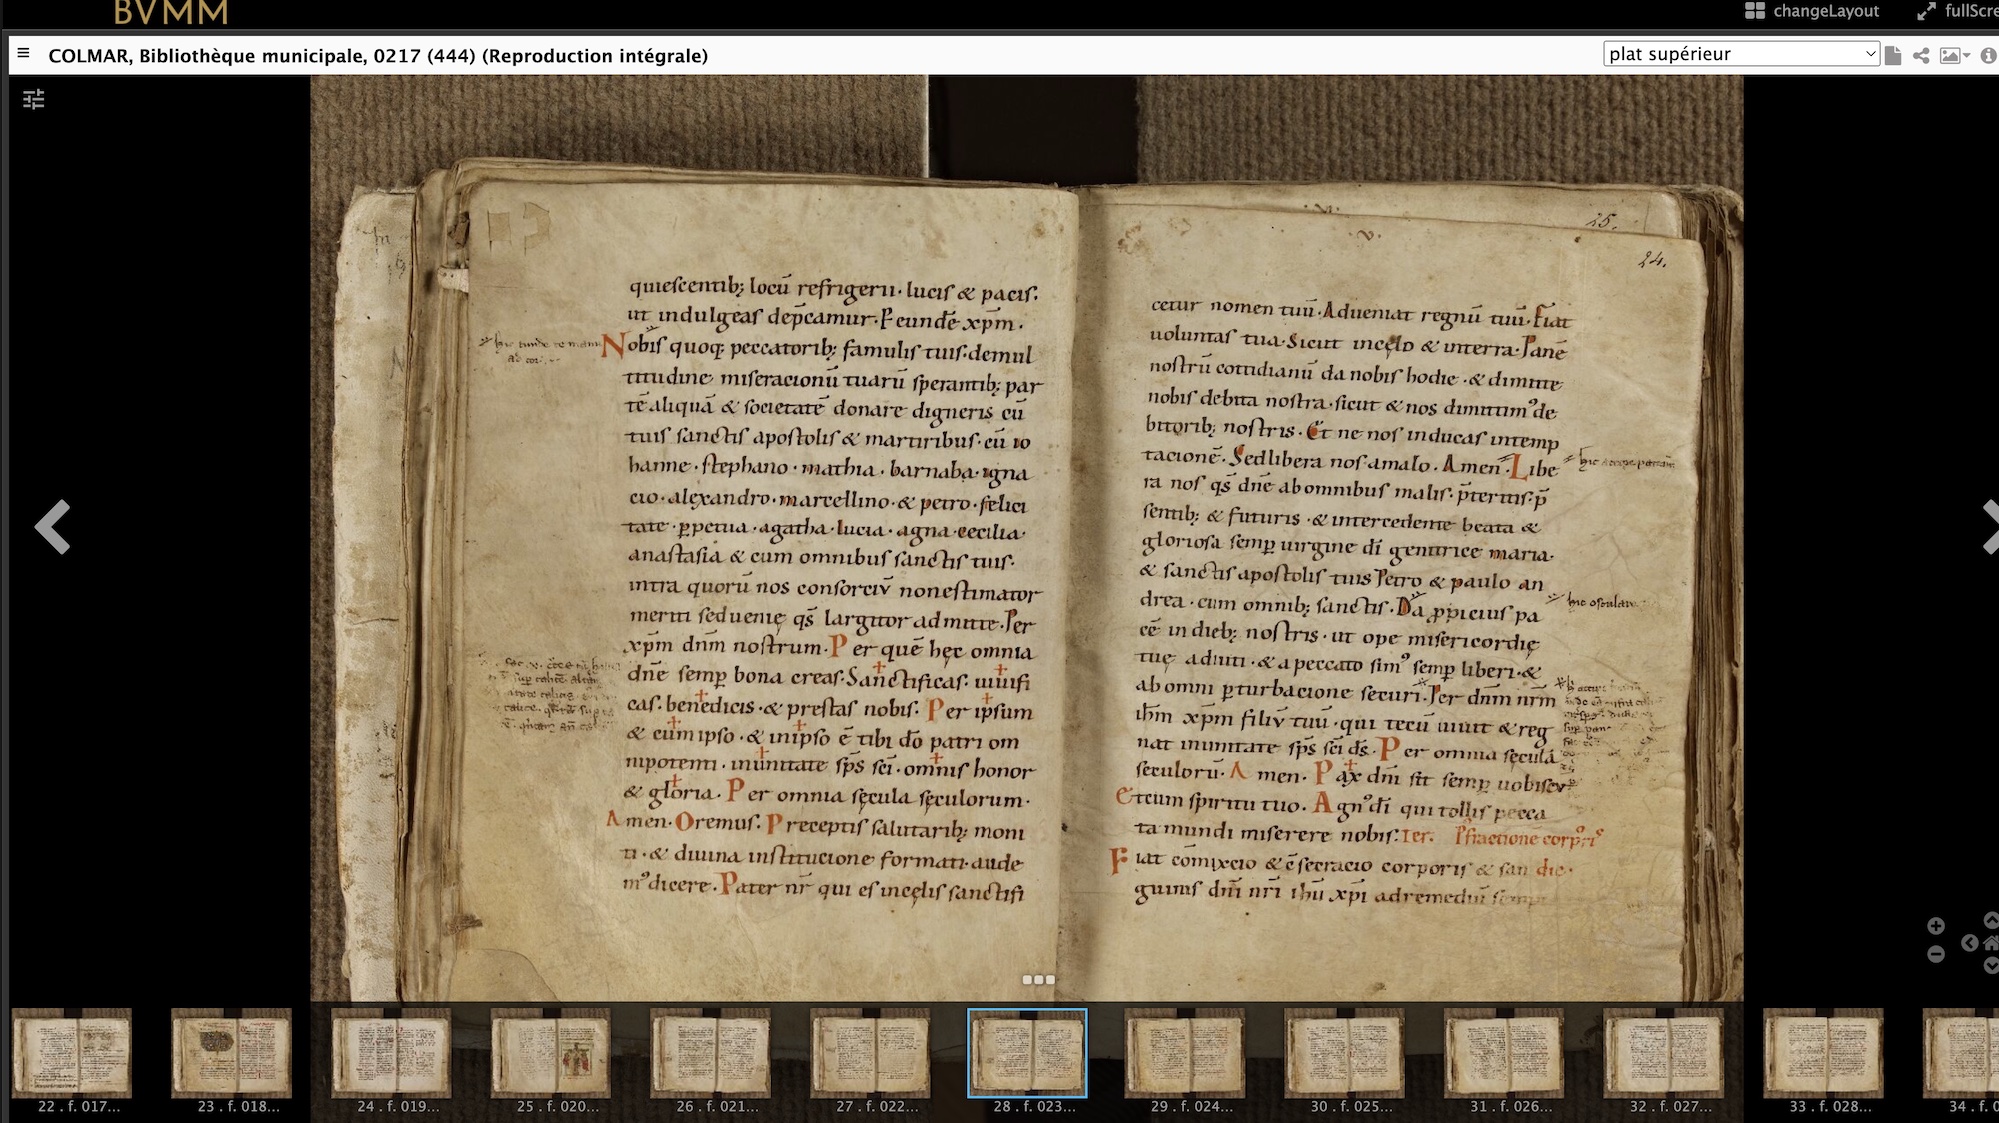 BVMM
changeLayout
fullScre
COLMAR, Bibliothèque municipale, 0217 (444) (Reproduction intégrale)
plat supérieur
quiescentib; locū refrigerii· lucis & pacis.
ut indulgeas dep̄camur. P eundē xp̄m.
Nobis quoq; peccatorib; famulis tuis· demul
titudine miseracionū tuarū sperantib; par
tē aliquā & societatē donare digneris cū
tuis sanctis apostolis & martiribus· cū io
hanne· stephano· mathia· barnaba· igna
cio· alexandro· marcellino· & petro· felici
tate· ꝑpetua· agatha· lucia· agna· cecilia·
anastasia & cum omnibus sanctis tuis·
intra quorū nos consorciū non estimator
meriti sed uenię qs̄ largitor admitte. Per
xp̄m dn̄m nostrum. Per quē hęc omnia
dn̄e semꝑ bona creas. Sanctificas. uiuifi
cas. benedicis· & prestas nobis. Per ipsum
& cum ipso· & in ipso ē tibi dō patri om
nipotenti· in unitate sp̄s sc̄i· omnis honor
& gloria. Per omnia sęcula sęculorum·
Amen. Oremus. Preceptis salutarib; moni
ti· & diuina institucione formati· aude
m᾿ dicere. Pater nr̄ qui es in cęlis sanctifi
25.
24.
cetur nomen tuū. Adueniat regnū tuū. Fiat
uoluntas tua. Sicut in cęlo & in terra. Panē
nostrū cottidianū da nobis hodie· & dimitte
nobis debita nostra· sicut & nos dimittim᾿ de
bitorib; nostris. Et ne nos inducas in temp
tacionē. Sed libera nos a malo. Amen. Libe
ra nos qs̄ dn̄e ab omnibus malis· p̄teritis· p̄
sentib; & futuris· & intercedente beata &
gloriosa semꝑ uirgine dī genitrice maria·
& sanctis apostolis tuis Petro & paulo an
drea· cum omnib; sanctis. Da ꝓpicius pa
cē in dieb; nostris· ut ope misericordię
tuę adiuti· & a peccato sim᾿ semꝑ liberi· &
ab omni ꝑturbacione securi. Per dn̄m nr̄m
ih̄m xp̄m filiū tuū· qui tecū uiuit & reg
nat in unitate sp̄s sc̄i ds̄. Per omnia secula
seculorū. Amen. Pax dn̄i sit semꝑ uobiscū
Et cum spiritu tuo. Agn᾿ dī qui tollis pecca
ta mundi miserere nobis. Ter.
Fiat cōmixcio & c̄secracio corporis & san dic·
guinis dn̄i nr̄i ih̄u xp̄i ad remediū
hic osculare
22 . f. 017...
23 . f. 018...
24 . f. 019...
25 . f. 020...
26 . f. 021...
27 . f. 022...
28 . f. 023...
29 . f. 024...
30 . f. 025...
31 . f. 026...
32 . f. 027...
33 . f. 028...
34 . f. 0